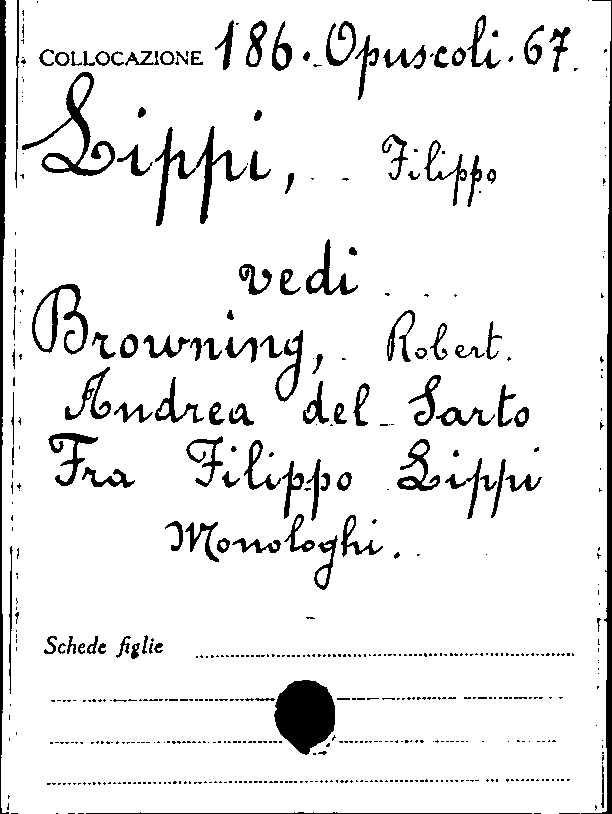 COLLOCAZIONE 186. Opuscoli. 67.
Lippi, Filippo
vedi
Browning, Robert.
Andrea del Sarto
Fra Filippo Lippi
Monologhi.
Schede figlie